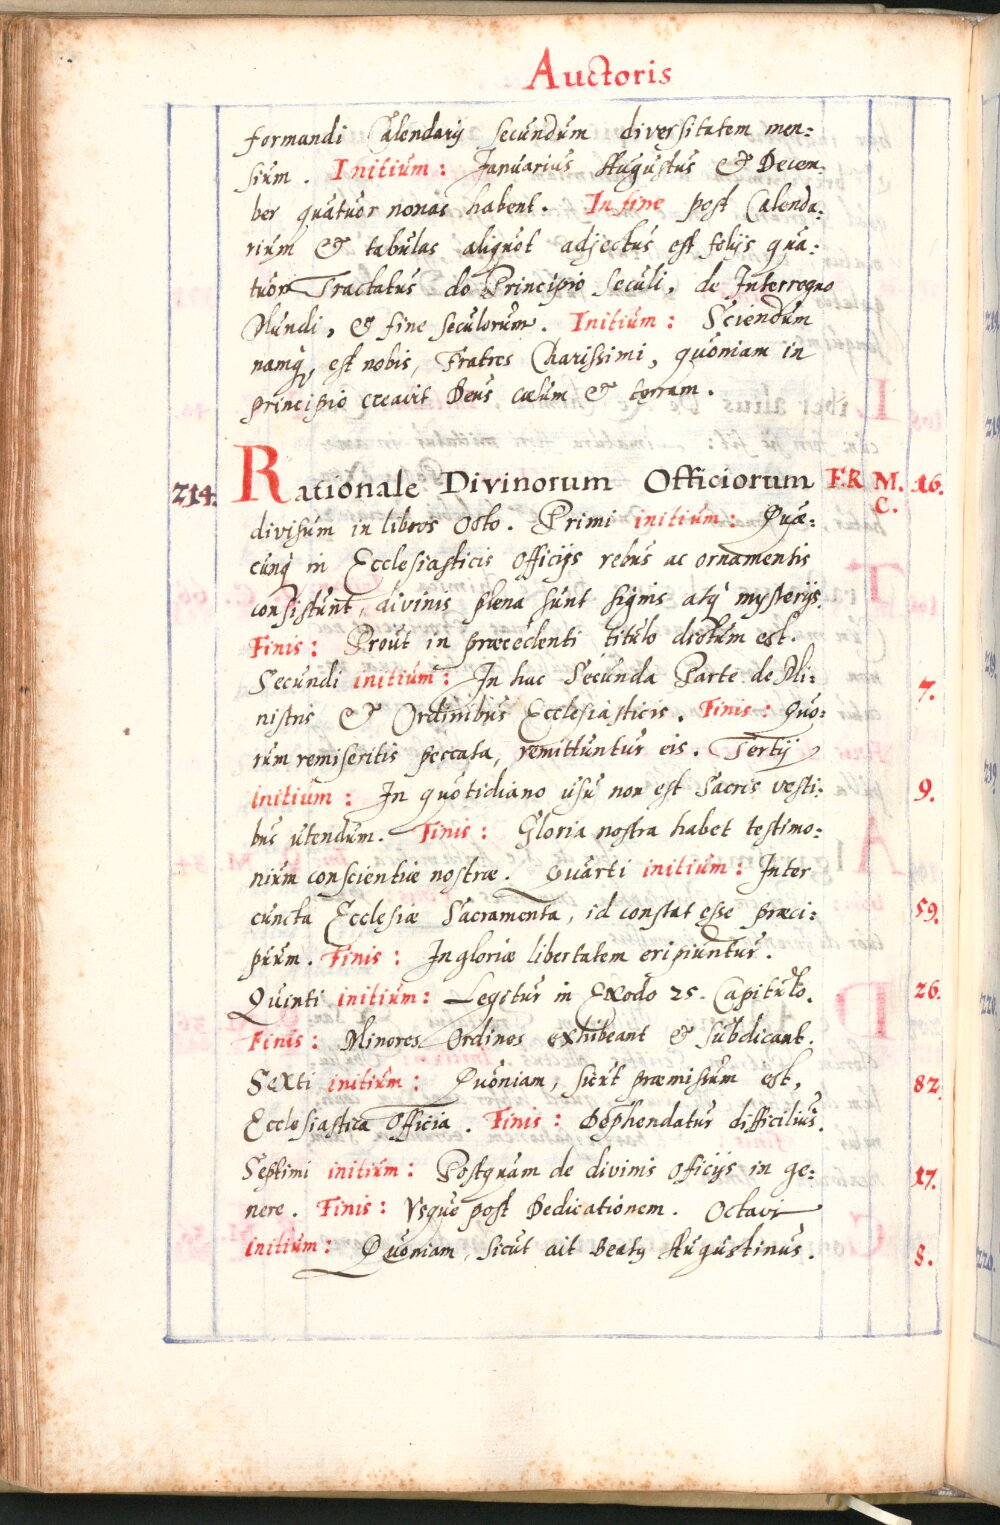 Auctoris
formandi Calendarij secundum diversitatem men:
sium. Initium: Januarius Augustus & Decem:
ber quatuor nonas habent. In fine post Calenda:
rium & tabulas aliquot adjectus est folijs qua:
tuor Tractatus de Principio Seculi, de Interregno
Mundi, & fine seculorum. Initium: Sciendum
namq, est nobis, Fratres Charissimi, quoniam in
principio creavit Deus cœlum & terram.
214. Rationale Divinorum Officiorum F.R M. 16.
C.
divisum in libros Octo. Primi initium: Quæ:
cunq in Ecclesiasticis Officijs rebus ac ornamentis
consistunt, divinis plena sunt signis atq mysterijs.
Finis: Prout in præcedenti titulo dictum est.
Secundi initium: In hac Secunda Parte de Mi: 7.
nistris & Ordinibus Ecclesiasticis. Finis: Quo:
rum remiseritis peccata, remittuntur eis. Tertij
initium: In quotidiano usu non est Sacris vesti: 9.
bus utendum. Finis: Gloria nostra habet testimo:
nium conscientiæ nostræ. Quarti initium: Inter
cuncta Ecclesiæ Sacramenta, id constat esse præci: 59.
puum. Finis: In gloriæ libertatem eripiuntur.
Quinti initium: Legitur in Exodo 25. Capitulo. 26.
Finis: Minores Ordines exhibeant & Subdicant.
Sexti initium: Quoniam, sicut præmissum est, 82.
Ecclesiastica Officia. Finis: Dephendatur difficilius.
Septimi initium: Postquam de divinis Officijs in ge: 17.
nere. Finis: Usque post Dedicationem. Octavi
initium: Quoniam, sicut ait Beatus Augustinus. 8.